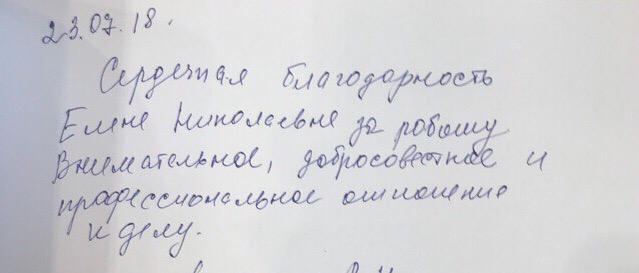 23.07.18.
Сердечная благодарность
Елене Николаевне за работу
Внимательное, добросовестное и
профессиональное отношение
к делу.